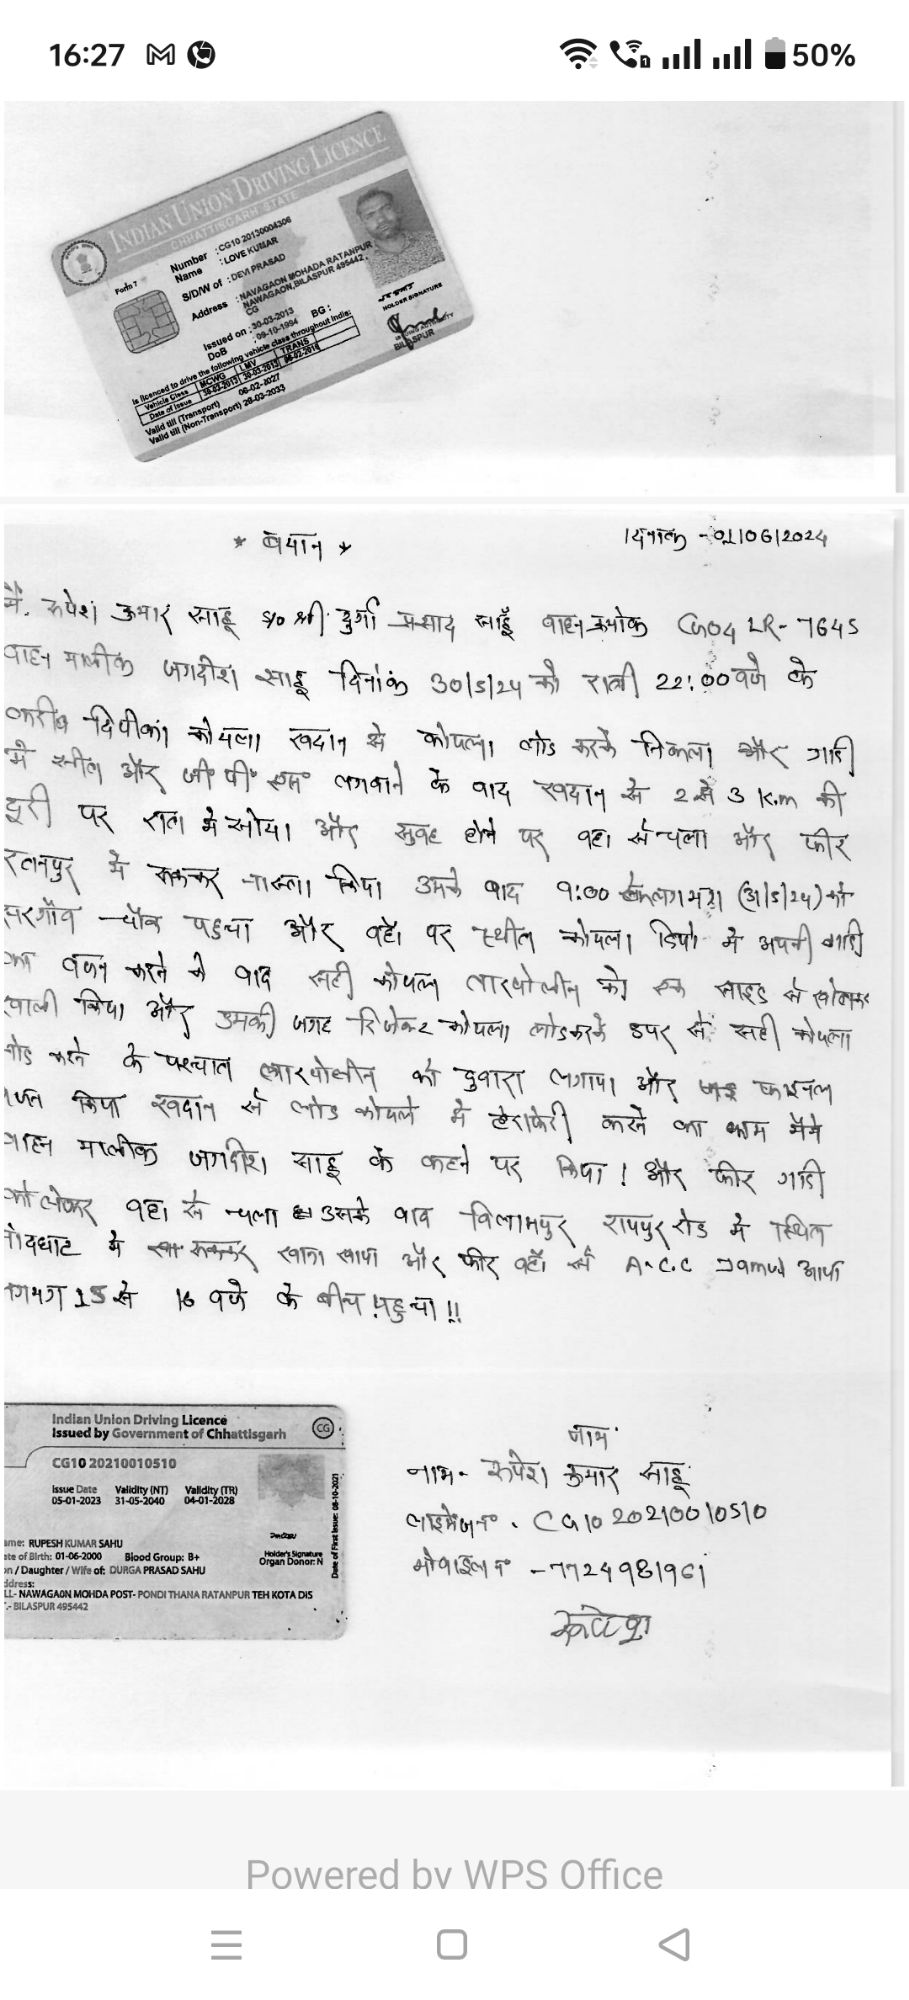 16:27
50%
INDIAN UNION DRIVING LICENCE
CHHATTISGARH STATE
Form 7
Number : CG10 20130004306
Name : LOVE KUMAR
S/D/W of : DEVI PRASAD
Address : NAVAGAON MOHADA RATANPUR
NAWAGAON,BILASPUR 495442,
CG
Issued on : 30-03-2013
DoB : 09-10-1994 BG :
Is licenced to drive the following vehicle class throughout India:
Vehicle Class MCWG LMV TRANS
Date of Issue 30-03-2013 30-03-2013
Valid till (Transport) 06-02-2027
Valid till (Non-Transport) 28-03-2033
HOLDER SIGNATURE
BILASPUR
* बयान *
दिनांक - 01/06/2024
मैं. रुपेश कुमार साहू S/o श्री दुर्गा प्रसाद साहूँ वाहन क्रमांक CG04 LR-7645
वाहन मालीक जगदीश साहू दिनांक 30/5/24 को रात्री 22:00 बजे के
करीब दिपीका कोयला खदान से कोयला लोड करके निकला और गाडी
में सील और जी० पी० एस० लगवाने के बाद खदान से 2 से 3 K.m की
दूरी पर रात में सोया और सुबह होने पर वहा से चला और फीर
रतनपुर में रुककर नास्ता किया उसके बाद 9:00 के लगभग (31/5/24) को
सरगाँव चौक पहुचा और वहाँ पर स्थीत कोयला डिपो में अपनी गाडी
का वजन करने के बाद सही कोयला तारपोलीन को एक साइड से खोलकर
खाली किया और उसकी जगह रिजेक्ट कोयला लोड करके उपर से सही कोयला
लोड करने के पश्चात तारपोलीन को दुबारा लगाया और फाइनल
वजन किया खदान से लोड कोयले में हेराफेरी करने का काम मैने
वाहन मालीक जगदीश साहू के कहने पर किया ! और फीर गाडी
को लेकर वहा से चला उसके बाद बिलासपुर रायपुर रोड में स्थित
नांदघाट में रुककर खाना खाया और फीर वहाँ से A.C.C Jamul आया
लगभग 15 से 16 बजे के बीच पहुचा !!
Indian Union Driving Licence
Issued by Government of Chhattisgarh
CG
CG10 20210010510
Issue Date Validity (NT) Validity (TR)
05-01-2023 31-05-2040 04-01-2028
Date of First Issue: 08-10-2021
ame: RUPESH KUMAR SAHU
ate of Birth: 01-06-2000 Blood Group: B+
on / Daughter / Wife of: DURGA PRASAD SAHU
ddress:
LL- NAWAGAON MOHDA POST- PONDI THANA RATANPUR TEH KOTA DIS
T.- BILASPUR 495442
Holder's Signature
Organ Donor: N
नाम
नाम - रुपेश कुमार साहू
लाइसेंस न० . CG10 20210010510
मोबाइल न० - 7724981961
रुपेश
Powered by WPS Office